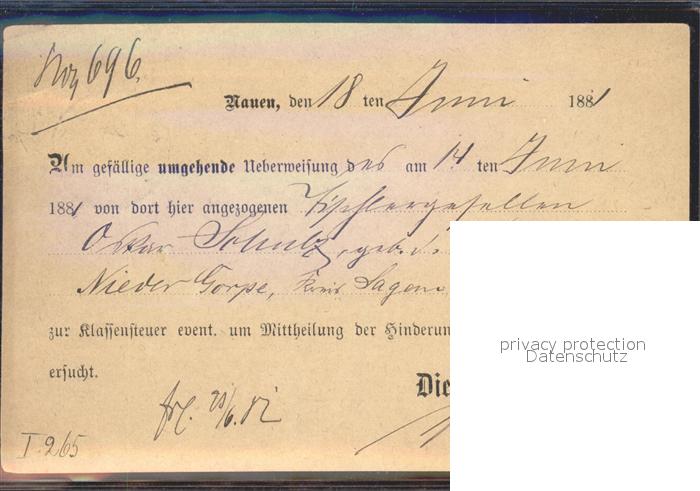 No 696.
Nauen, den 18 ten Juni 1881
Um gefällige umgehende Ueberweisung des am 14 ten Juni
1881 von dort hier angezogenen Tischlergesellen
Oskar Schulz, geb. z.
Nieder Gorpe, Kreis Sagan
zur Klassensteuer event. um Mittheilung der Hinderun
ersucht.
Die
I 265
privacy protection
Datenschutz